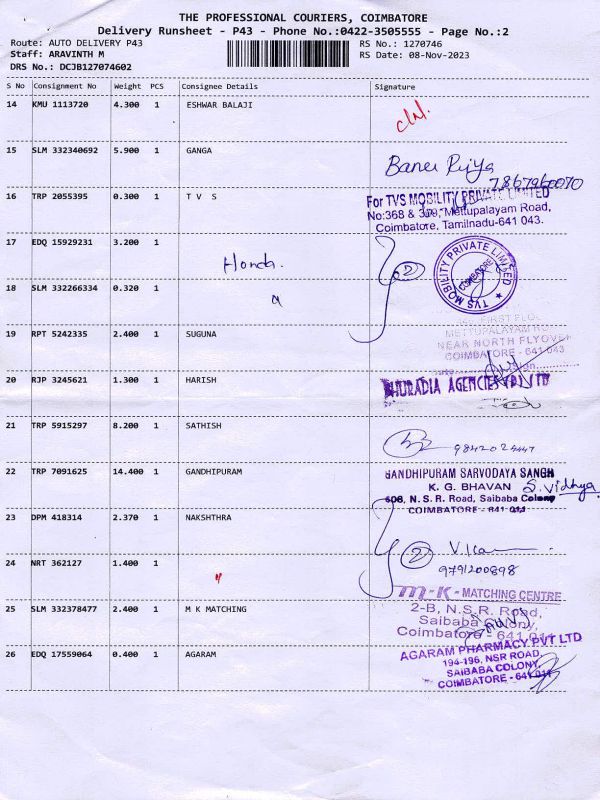 THE PROFESSIONAL COURIERS, COIMBATORE
Delivery Runsheet - P43 - Phone No.:0422-3505555 - Page No.:2
Route: AUTO DELIVERY P43 RS No.: 1270746
Staff: ARAVINTH M RS Date: 08-Nov-2023
DRS No.: DCJB127074602
S No Consignment No Weight PCS Consignee Details Signature
14 KMU 1113720 4.300 1 ESHWAR BALAJI
15 SLM 332340692 5.900 1 GANGA
7867960070
16 TRP 2055395 0.300 1 T V S
For TVS MOBILITY PRIVATE LIMITED
No:368 & 369, Mettupalayam Road,
Coimbatore, Tamilnadu-641 043.
17 EDQ 15929231 3.200 1
Honda.
2
TVS MOBILITY PRIVATE LIMITED
COIMBATORE
18 SLM 332266334 0.320 1
19 RPT 5242335 2.400 1 SUGUNA
METTUPALAYAM RO
NEAR NORTH FLYOVER
COIMBATORE - 641 043
20 RJP 3245621 1.300 1 HARISH
21 TRP 5915297 8.200 1 SATHISH
22 TRP 7091625 14.400 1 GANDHIPURAM
GANDHIPURAM SARVODAYA SANGH
K. G. BHAVAN S. Vidhya
608, N. S. R. Road, Saibaba Colony
COIMBATORE - 641 011
23 DPM 418314 2.370 1 NAKSHTHRA
2
9791200898
24 NRT 362127 1.400 1
M-K- MATCHING CENTRE
25 SLM 332378477 2.400 1 M K MATCHING
2-B, N.S.R. Road,
Saibaba Colony,
Coimbatore - 641 011
26 EDQ 17559064 0.400 1 AGARAM
AGARAM PHARMACY PVT LTD
194-196, NSR ROAD,
SAIBABA COLONY,
COIMBATORE - 641 011